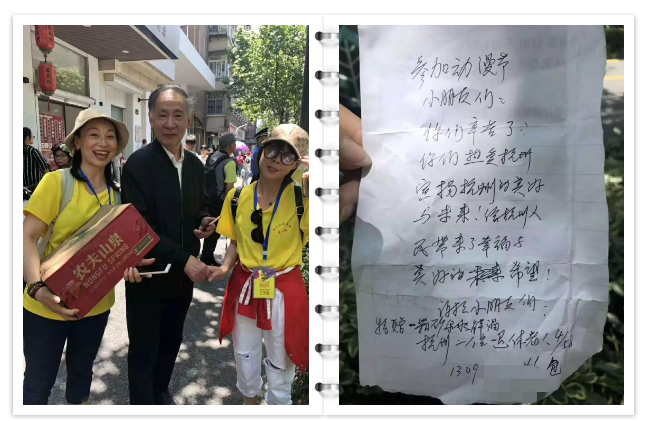 农夫山泉
NONGFU SPRING
参加动漫节
小朋友们:
你们辛苦了:
你们热爱杭州
宣扬杭州的美好
与未来!给杭州人
民带来了幸福与
美好的希望!
谢谢小朋友们:
特赠一箱矿泉水解渴
杭州一位退休老人
1309